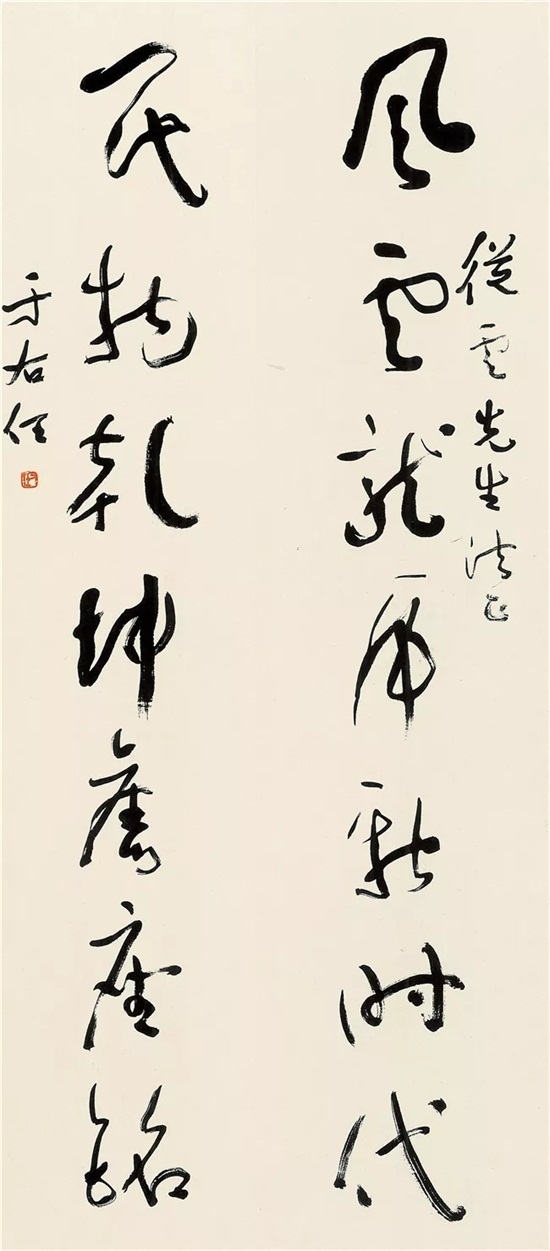 從雲先生法正
風雲龍虎新時代
民物乾坤舊座銘
于右任